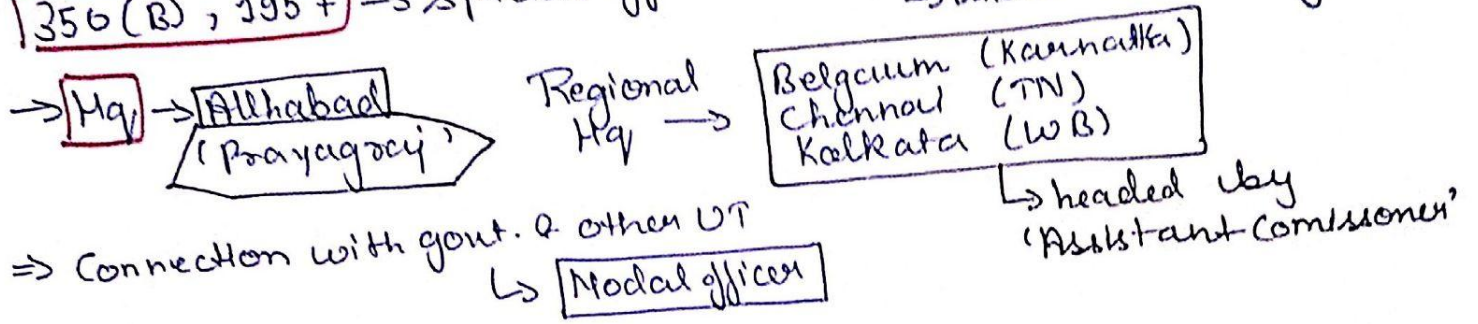 350 (B), 
→ Hq → Allhabad
(Prayagraj)
Regional Hq →
Belgaum (Karnatka)
Chennai (TN)
Kolkata (WB)
↳ headed by
'Assistant Comissoner'
⇒ Connection with govt. & other UT
↳ Nodal officer